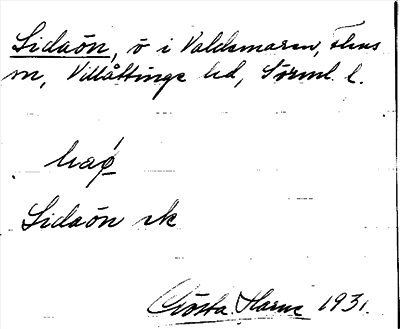 Sidaön, ö i Valdemaren, Flens
sn, Villåttinge hd, Sörml. l.
Sidaön rk
Gösta Harne 1931.